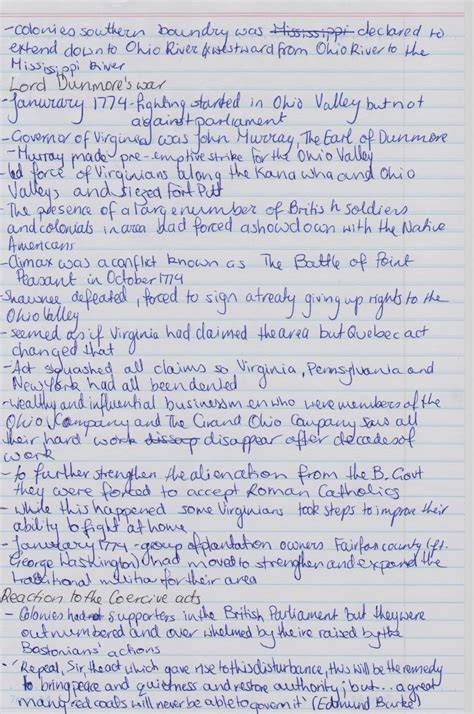 -colonies southern boundry was Mississippi declared to
extend down to Ohio River & westward from Ohio River to the
Mississippi River
Lord Dunmore's war
-Janurary 1774-fighting started in Ohio Valley but not
against parliament
-Governor of Virginia was John Murray, The Earl of Dunmore
-Murray made pre-emptive strike for the Ohio Valley
-led force of Virginians along the Kanawha and Ohio
Valleys and siezed Fort Pitt
-The presence of a large number of British soldiers
and colonials in area had forced a showdown with the Native
Americans
-Climax was a conflict known as The Battle of Point
Peasant in October 1774
-Shawnee defeated, forced to sign a treaty giving up rights to the
Ohio Valley
-seemed as if Virginia had claimed the area but Quebec act
changed that
-Act squashed all claims so Virginia, Pennsylvania and
New York had all been denied
-wealthy and influential businessmen who were members of the
Ohio Company and The Grand Ohio Company saw all
their hard work dissap disappear after decades of
work
-to further strengthen the alienation from the B. Govt
they were forced to accept Roman Catholics
- while this happened some Virginians took steps to improve their
ability to fight at home
-Janurary 1774 -group of plantation owners Fairfax county (ft.
George Washington) had moved to strengthen and expand the
traditional militia for their area
Reaction to the Coercive acts
- Colonies had supporters in the British Parliament but they were
outnumbered and over whelmed by the ire raised by the
Bostonians' actions
- 'Repeal, Sir, the act which gave rise to this disturbance, this will be the remedy
to bring peace and quietness and restore authority; but... a great
many red coats will never be able to govern it' (Edmund Burke)